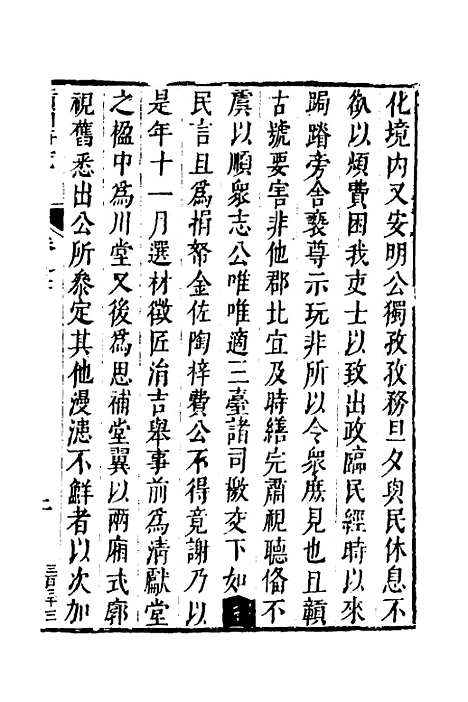 化境内又安明公獨孜孜務旦夕與民休息不
欲以煩費困我吏士以致出政臨民經時以來
跼蹐旁舍褻尊示玩非所以令衆庶見也且贛
古號要害非他郡比宜及時繕完肅視聽俻不
虞以順衆志公唯唯適三臺諸司檄交下如
民言且為捐帑金佐陶梓費公不得竟謝乃以
是年十一月選材徵匠涓吉舉事前為清獻堂
之楹中為川堂又後為思補堂翼以兩廂式廓
視舊悉出公所叅定其他漫漶不鮮者以次加
三百三十三